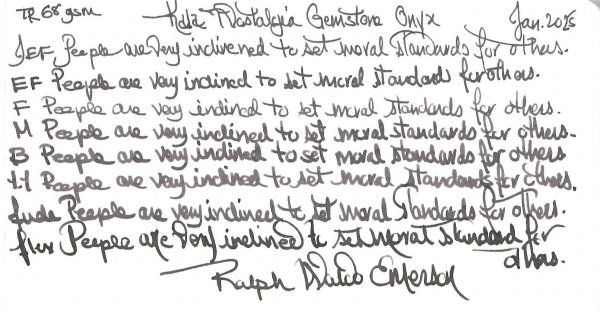 TR 68 gsm Kala Nostalgia Gemstone Onyx Jan. 2025
JEF People are very inclinened to set moral standards for others.
EF People are very inclined to set moral standards for others.
F People are very inclined to set moral standards for others.
M People are very inclined to set moral standards for others.
B People are very inclined to set moral standards for others
1.1 People are very inclined to set moral standards for others.
fude People are very inclined to set moral standards for others.
flex People are very inclined to set moral standard for
others.
Ralph Waldo Emerson